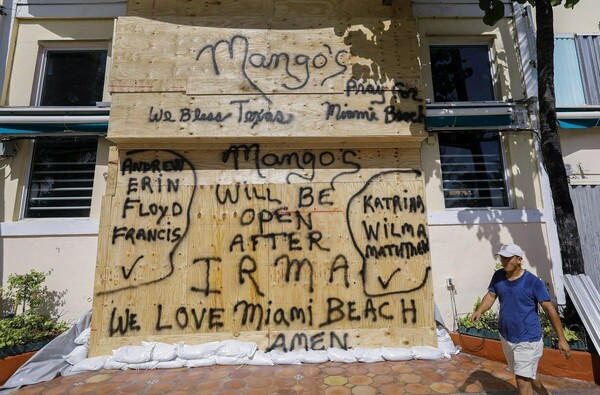 Mango's
We Bless Texas
Pray For
Miami Beach
Mango's
Will Be
Open
After
IRMA
Andrew
Erin
Floyd
Francis
✓
Katrina
Wilma
Matthew
✓
We Love Miami Beach
Amen